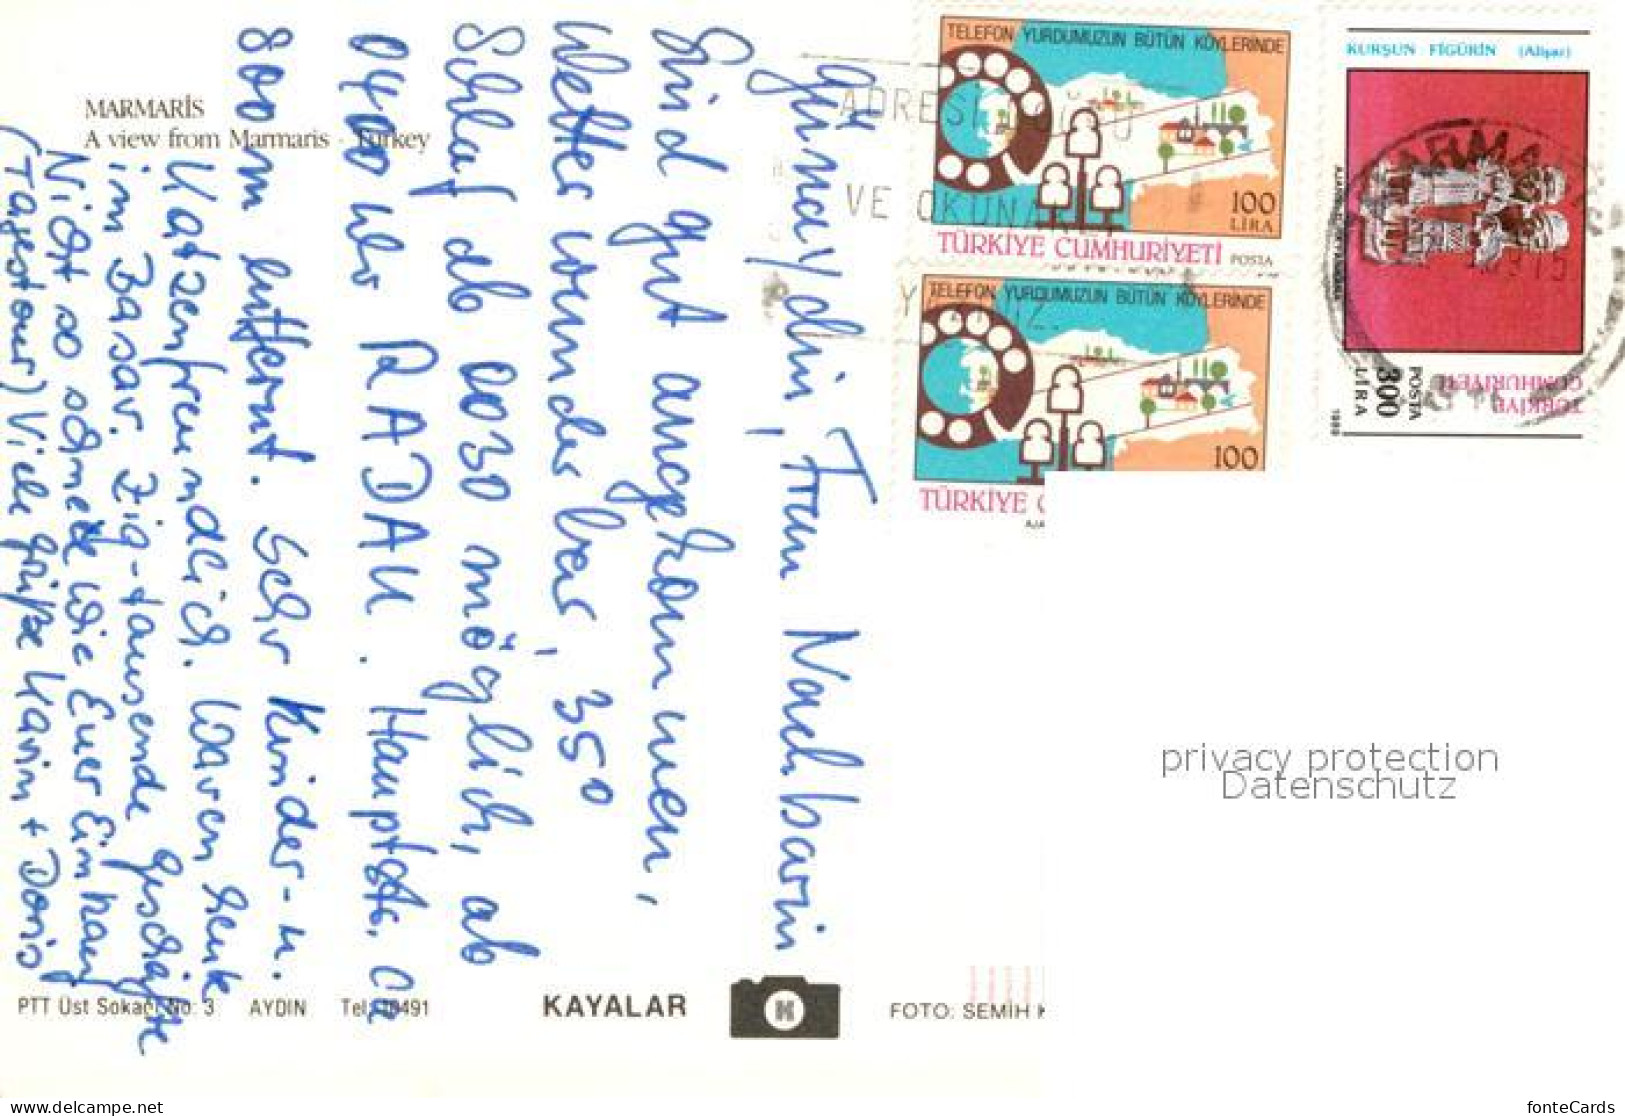 MARMARİS
A view from Marmaris - Turkey
Günaydin, Frau Nachbarin
Sind gut angekommen,
Wetter wunderbar, 35°
Schlaf ab 0030 möglich, ab
0400 Uhr RADAU. Hauptstr. ca
800 m entfernt. Sehr Kinder- u.
Katzenfreundlich. Waren heute
im Basar. Zig-tausende Geschäfte
Nicht so schnell wie Euer Einkauf
(Tagestour) Viele Grüße Karin + Doris
PTT Üst Sokağı No: 3 AYDIN Tel: 18491
KAYALAR
FOTO: SEMİH K
ADRESİ
VE OKUNA
TELEFON YURDUMUZUN BÜTÜN KÖYLERİNDE
100
LİRA
TÜRKİYE CUMHURİYETİ POSTA
TELEFON YURDUMUZUN BÜTÜN KÖYLERİNDE
100
TÜRKİYE C
AJA
KURŞUN FİGÜRİN (Alişar)
MARMARİS
TÜRKİYE
CUMHURİYETİ
POSTA
300
LİRA
1989
privacy protection
Datenschutz
www.delcampe.net
fonteCards